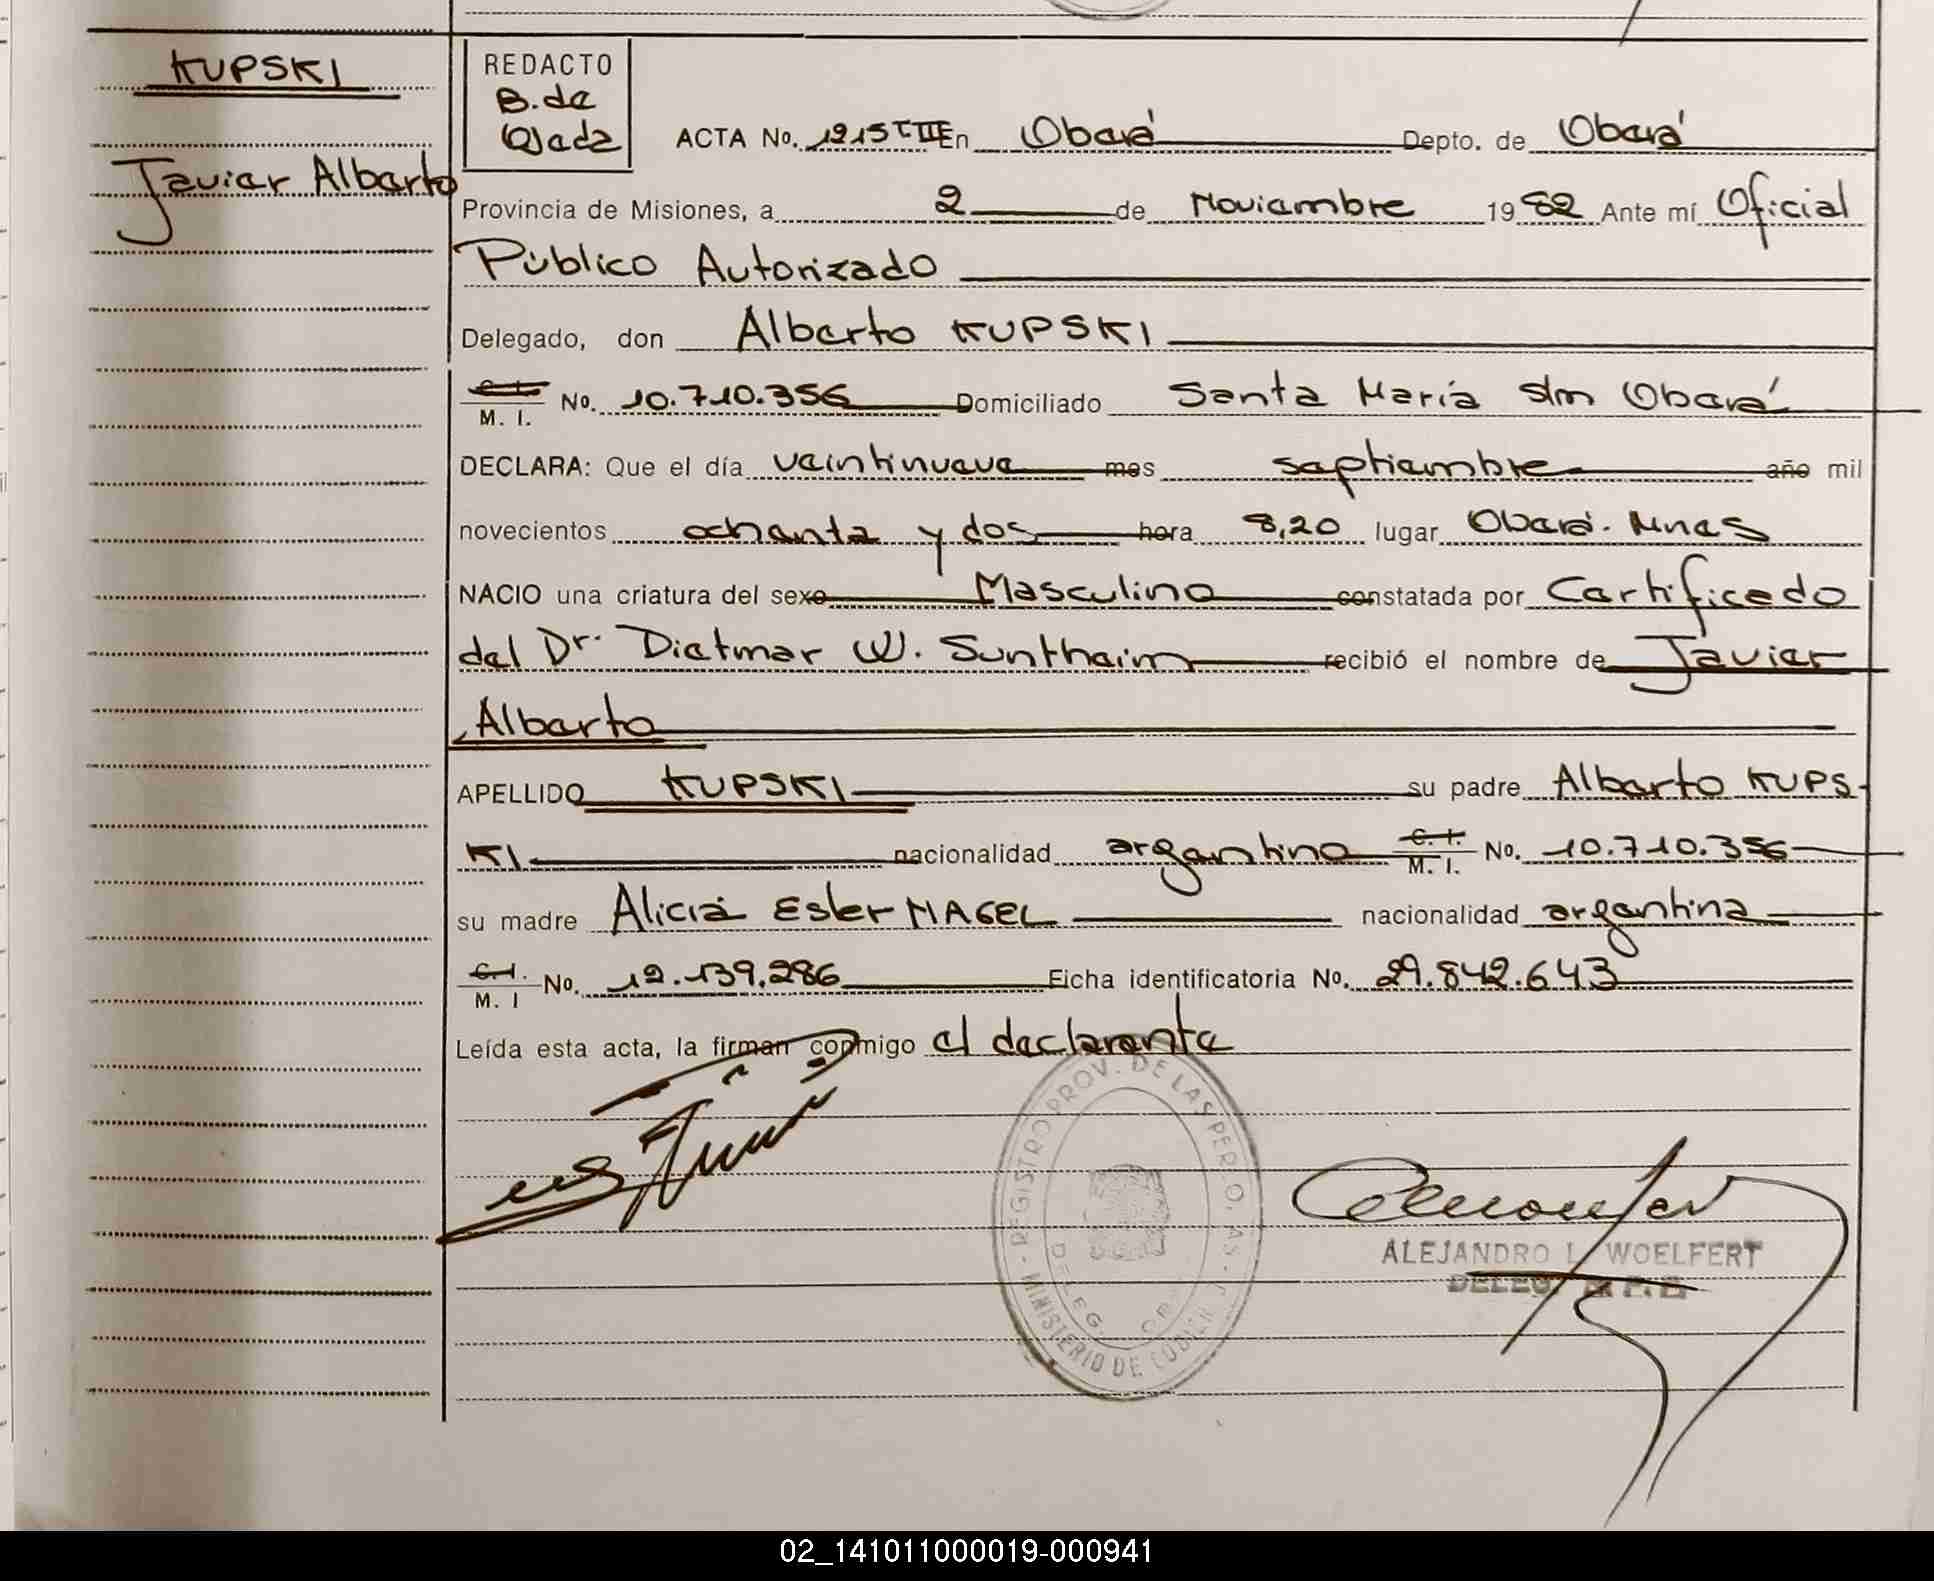 KUPSKI
Javier Alberto
REDACTO
B. de
Ojeda
ACTA No. 1215 T III En Oberá Depto. de Oberá
Provincia de Misiones, a 2 de Noviembre 1982 Ante mí Oficial
Público Autorizado
Delegado, don Alberto KUPSKI
C. I.
M. I. No. 10.710.356 Domiciliado Santa María s/m Oberá
DECLARA: Que el día veintinueve mes septiembre año mil
novecientos ochenta y dos hora 8,20 lugar Oberá. Mnes
NACIO una criatura del sexo Masculino constatada por Certificado
del Dr. Dietmar W. Suntheim recibió el nombre de Javier
Alberto
APELLIDO KUPSKI su padre Alberto KUPS-
KI nacionalidad argentino C. I.
M. I. No. 10.710.356
su madre Alicia Ester NAGEL nacionalidad argentina
C. I.
M. I No. 12.139.286 Ficha identificatoria No. 29.842.643
Leída esta acta, la firman conmigo el declarante
REGISTRO PROV. DE LAS PERSO. AS - MINISTERIO DE GOBIER
DELEG. OBE
ALEJANDRO L. WOELFERT
DELEG.
02_141011000019-000941